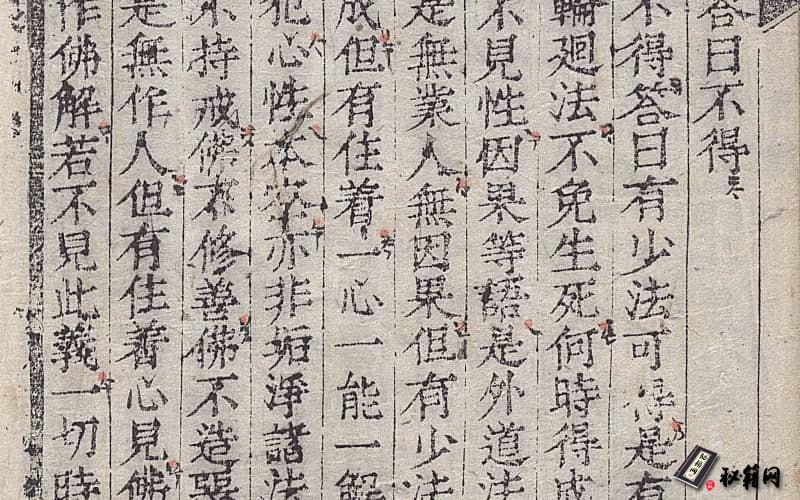 答曰不得
不得答曰有少法可得是有
輪廻法不免生死何時得成
不見性因果等語是外道法
是無業人無因果但有少法
成但有住着一心一能一解
犯心性本空亦非垢淨諸法
不持戒佛不修善佛不造惡
是無作人但有住着心見佛
作佛解若不見此義一切時
秘籍网